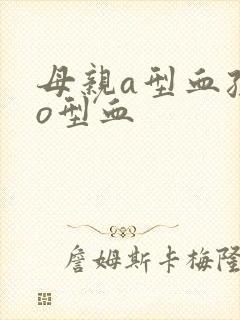 母親a型血
o型血
詹姆斯卡梅隆